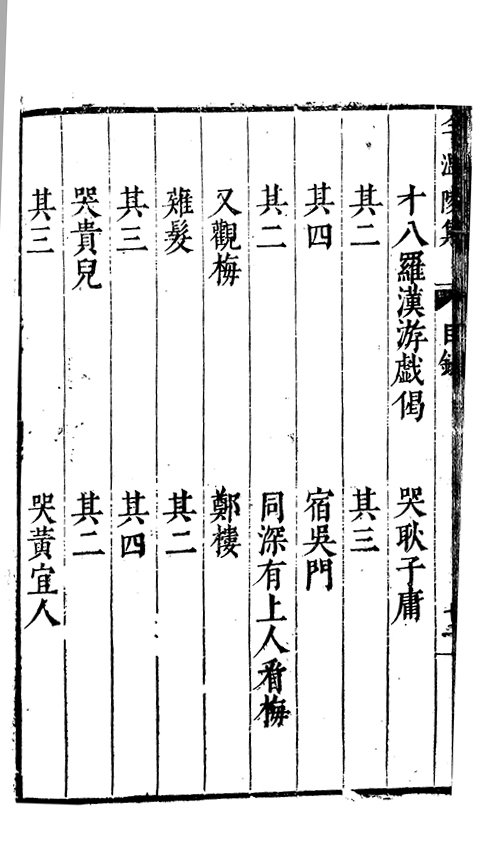 李溫陵集 目錄
十八羅漢游戯偈 哭耿子庸
其二 其三
其四 宿吳門
其二 同深有上人看梅
又觀梅 鄭樓
薙髮 其二
其三 其四
哭貴兒 其二
其三 哭黃宜人